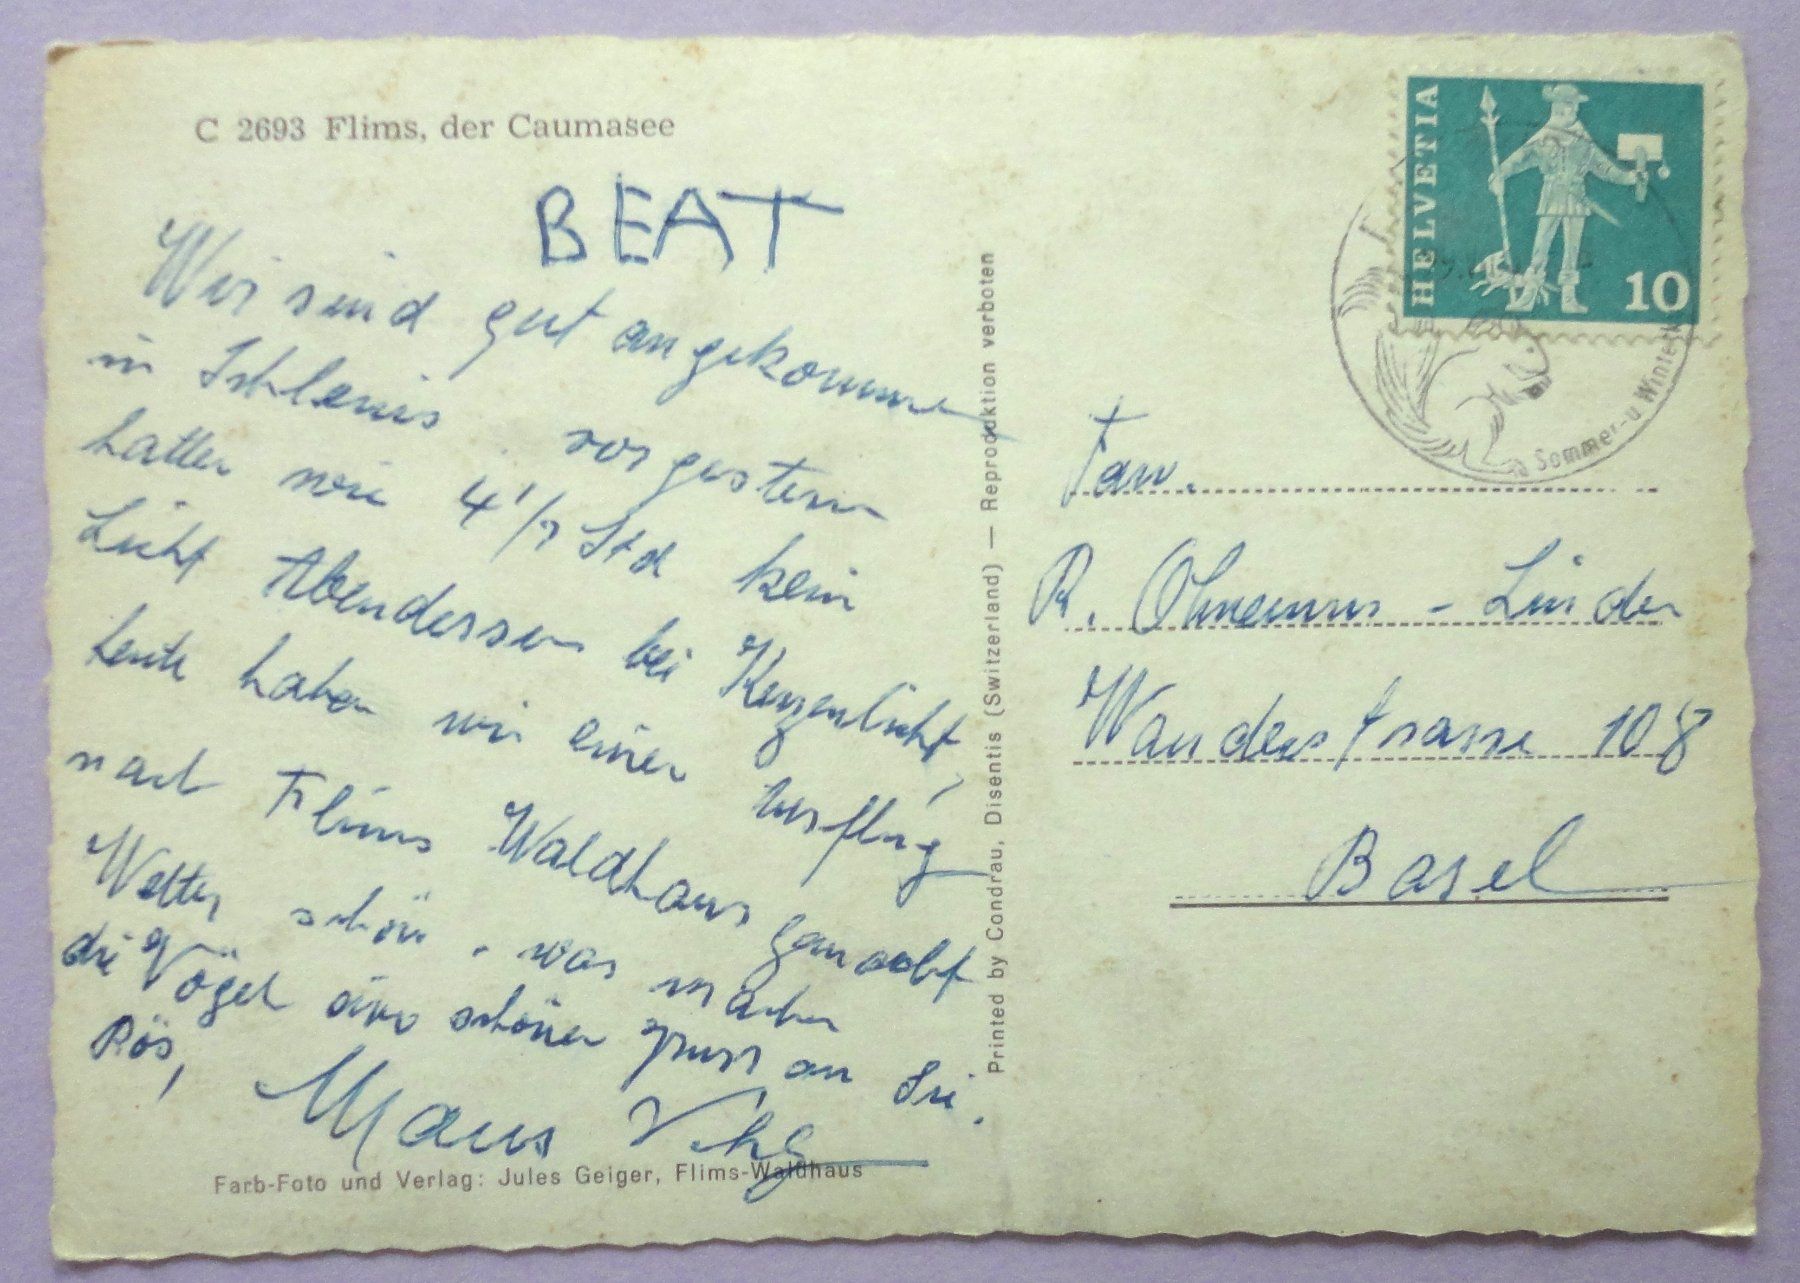 C 2693 Flims, der Caumasee
BEAT
Wir sind gut angekommen
in vorgestern
hatten wir 4 1/2 Std kein
Licht Abendessen bei Kerzenlicht,
heute haben wir einen Ausflug
nach Flims Waldhaus gemacht
Wetter schön. was machen
die Vögel schöner gruss an Sie.
Rös,
Farb-Foto und Verlag: Jules Geiger, Flims-Waldhaus
Printed by Condrau, Disentis (Switzerland) — Reproduktion verboten
HELVETIA
10
Sommer- u Winter
Fam.
R. Ohnemus - Linder
Wanderstrasse 108
Basel